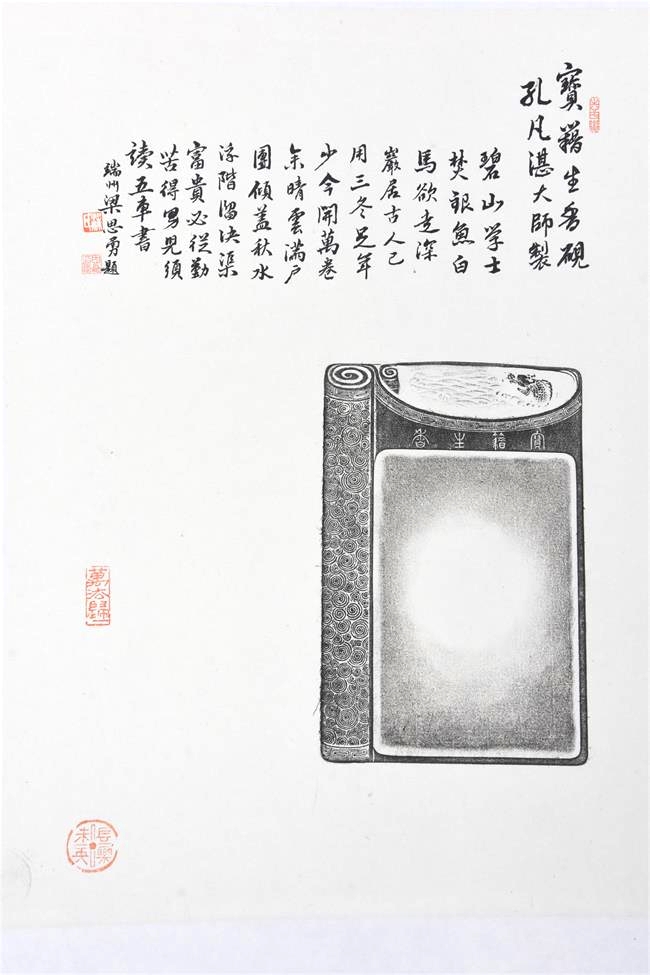 寶籍生香硯
孔凡湛大師製
碧山学士
焚銀魚白
馬欲走深
巖居古人已
用三冬足年
少今開萬卷
余晴雲滿户
團傾盖秋水
浮階溜决渠
富貴必從勤
苦得男兒須
讀五車書
瑞州梁思勇題
寶籍生香
萬法歸一